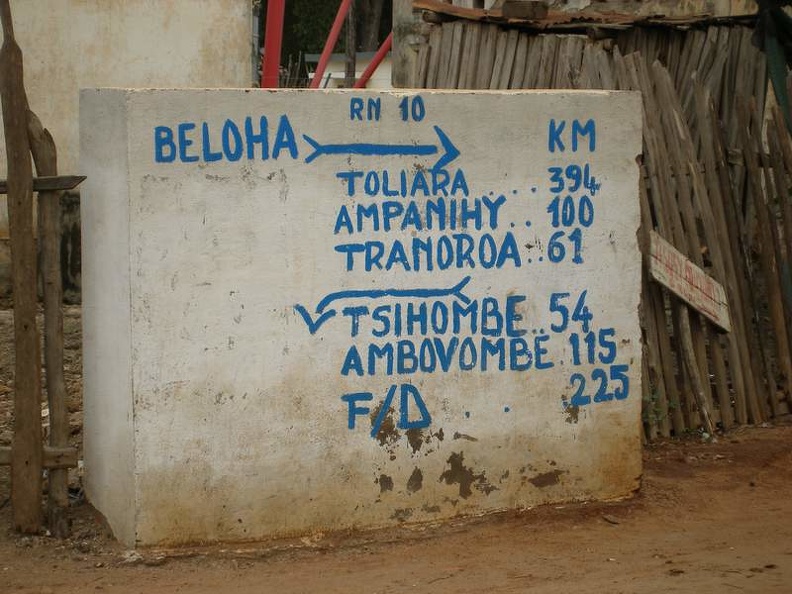 RN 10
BELOHA KM
TOLIARA . . . 394
AMPANIHY . . 100
TRANOROA . . 61
TSIHOMBE . . 54
AMBOVOMBE . 115
F/D . . 225